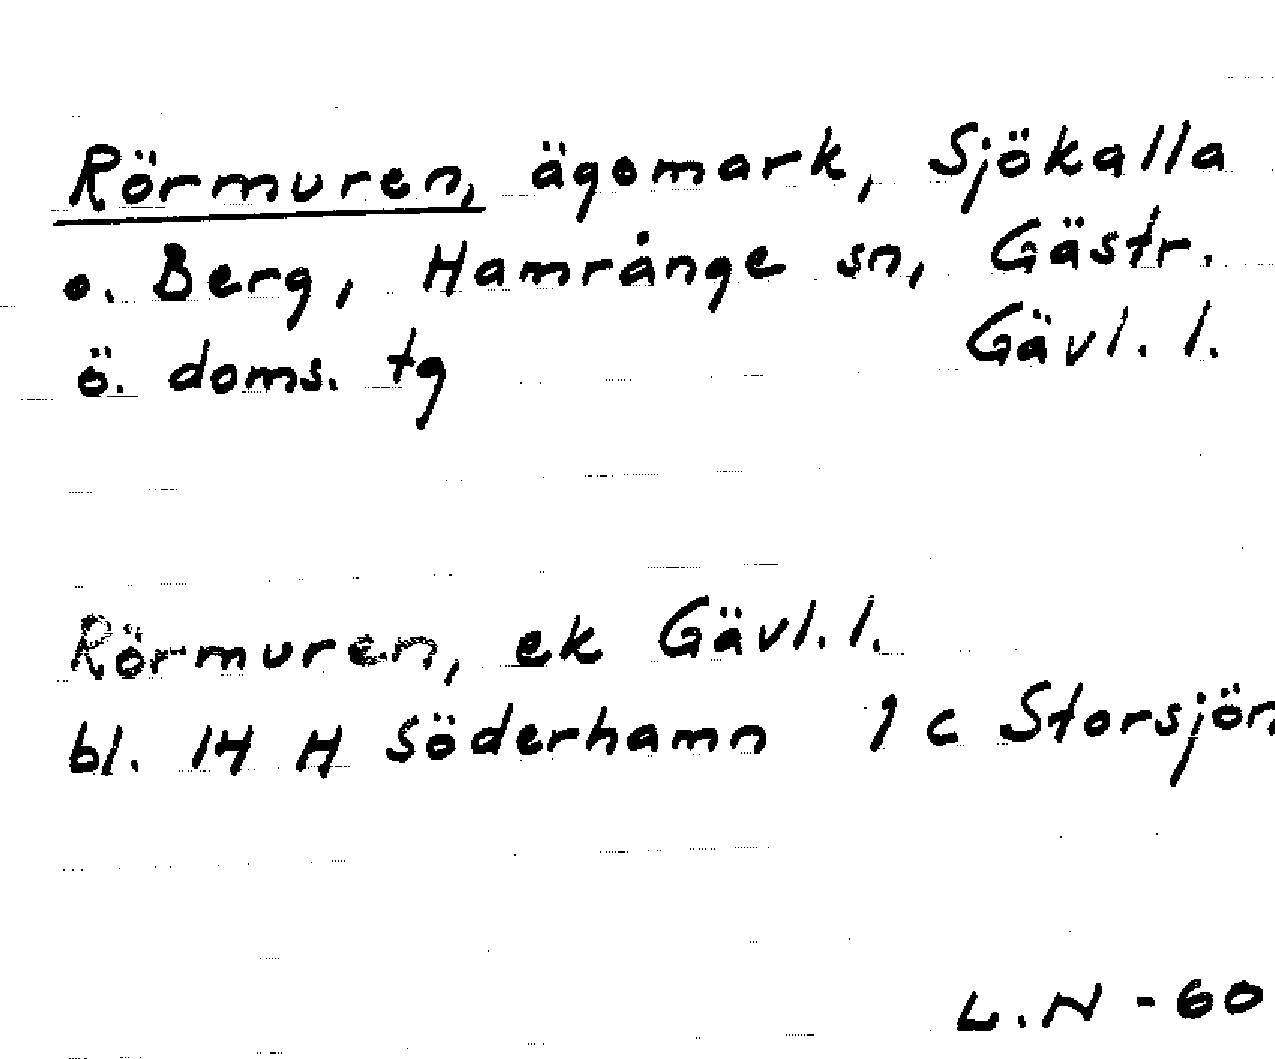 Rörmuren, ägomark, Sjökalla
o. Berg, Hamrånge sn, Gästr.
ö. doms. tg Gävl. l.
Rörmuren, ek Gävl. l.
bl. 14 H Söderhamn 1 c Storsjön
L.N - 60